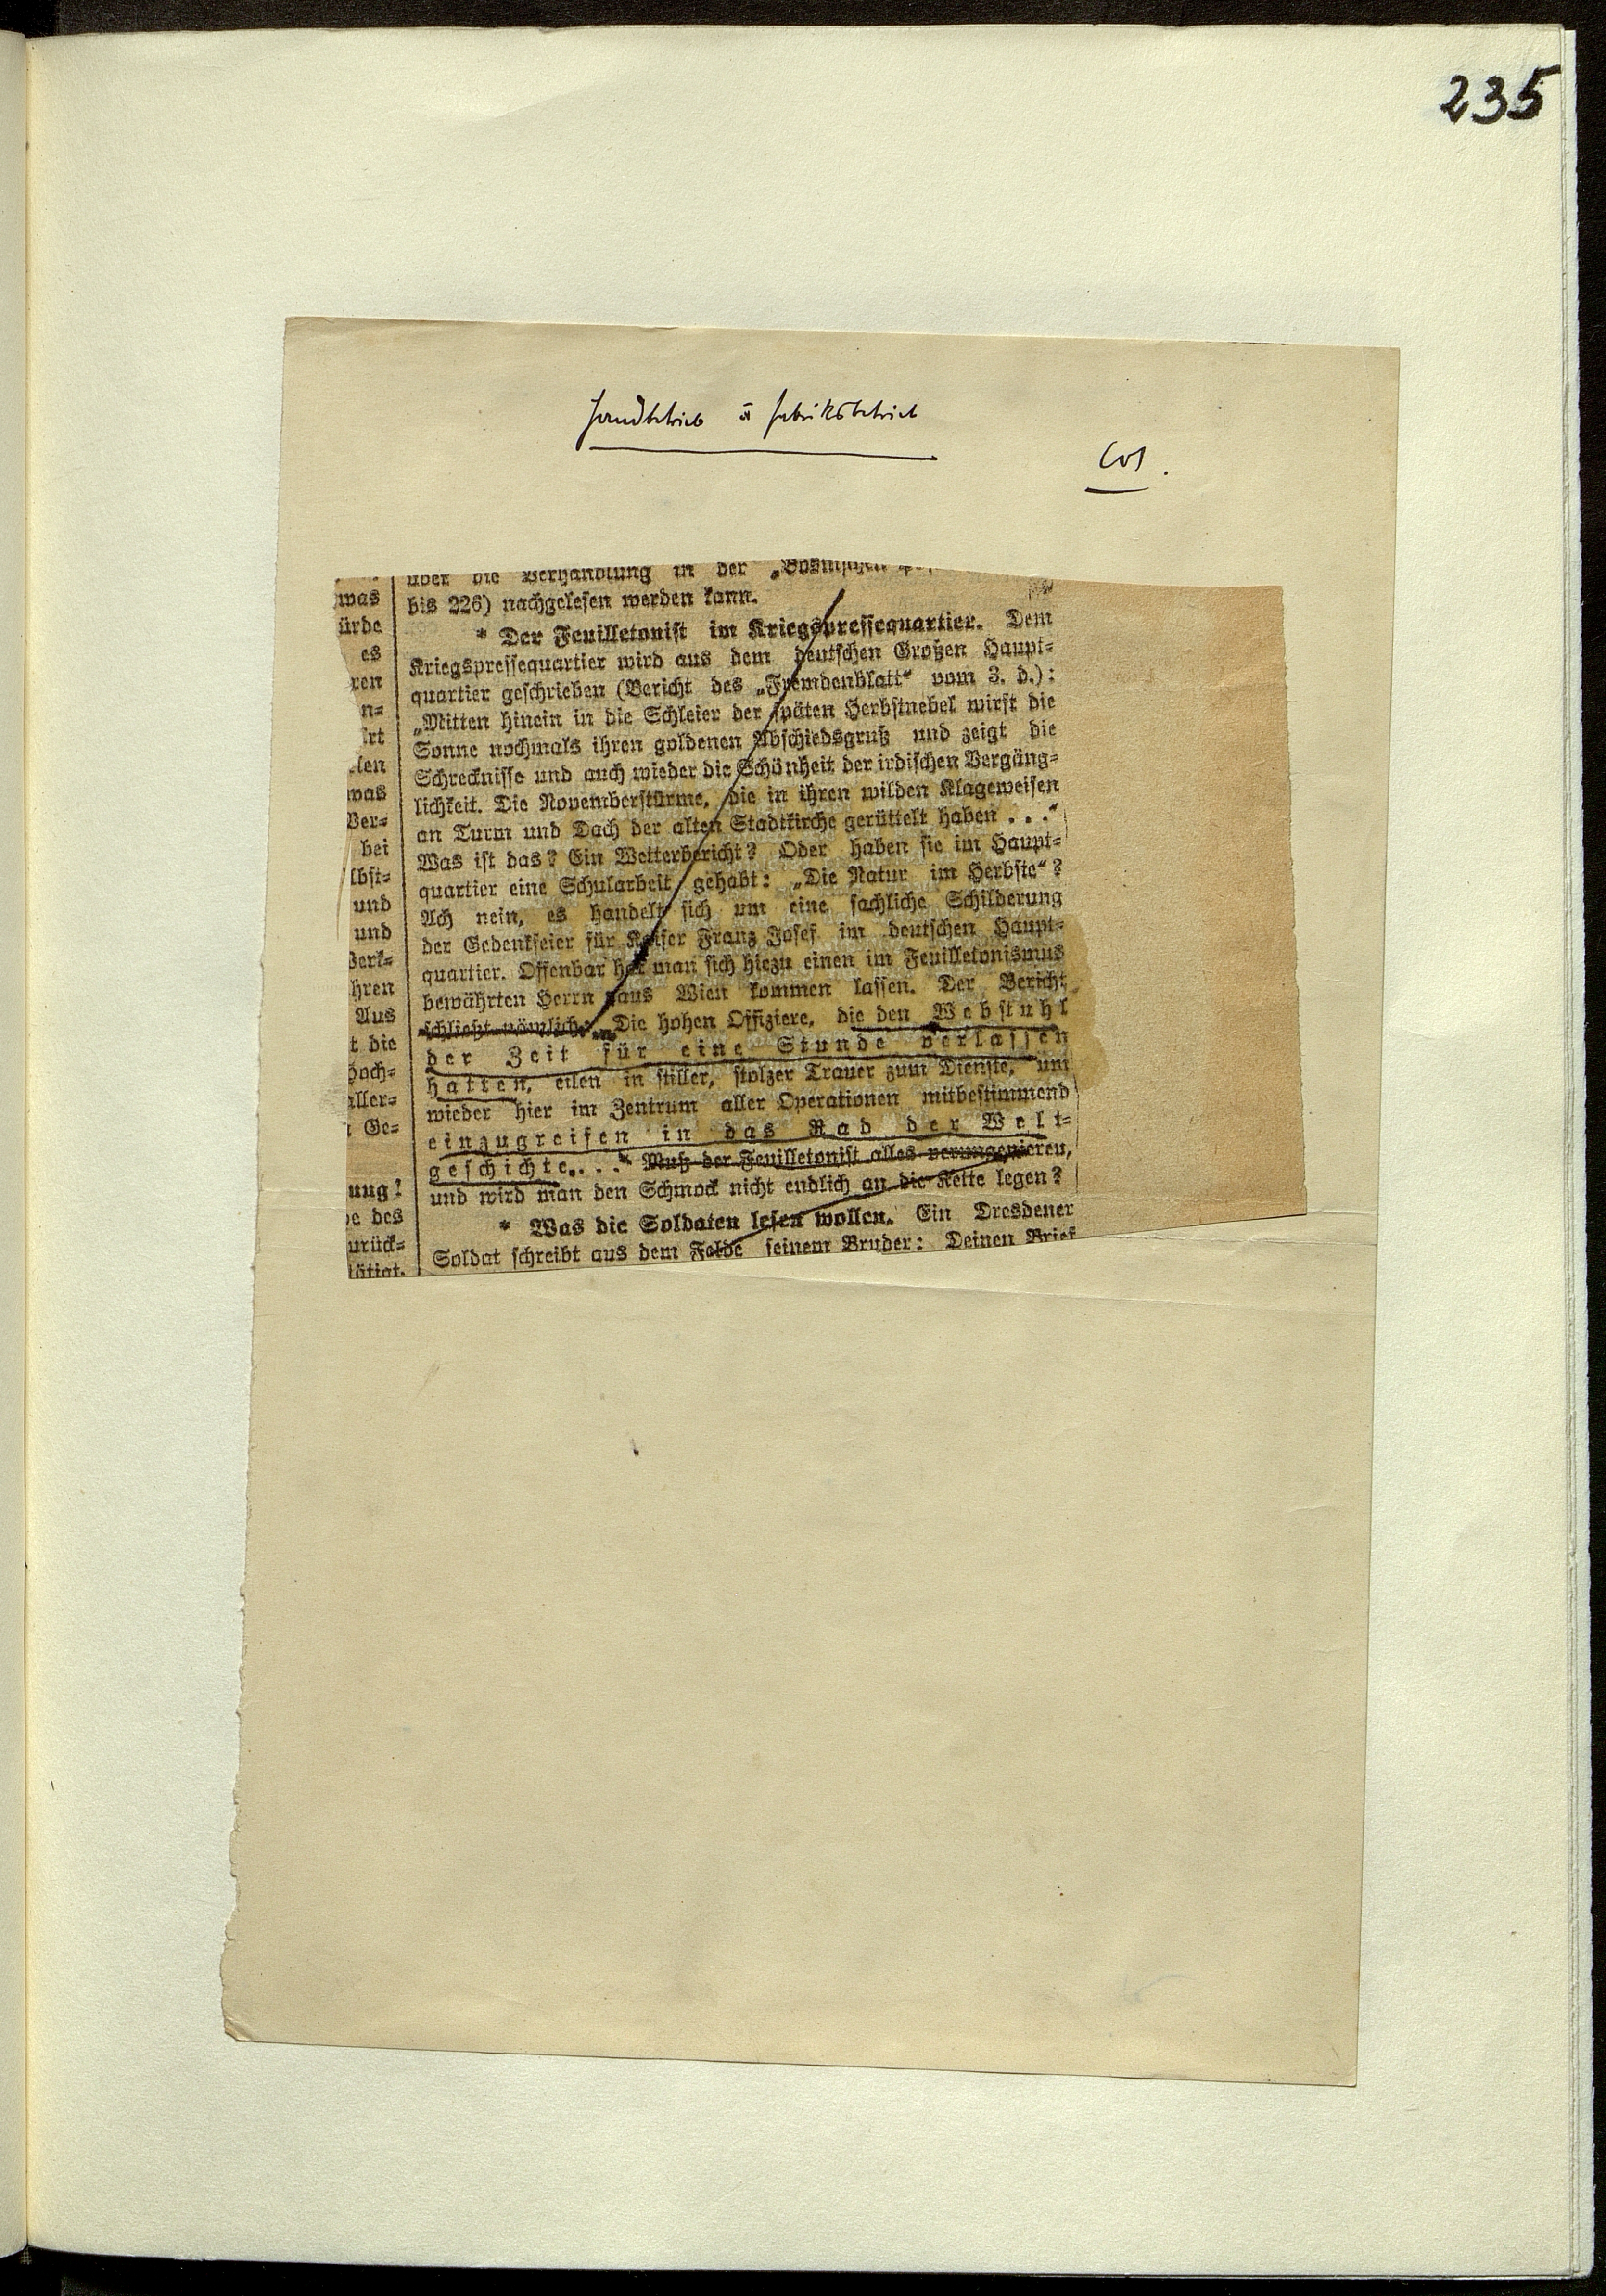 235
Handbetrieb u Fabriksbetrieb
Cos.
über die Verhandlung in der
bis 226) nachgelesen werden kann.
* Der Feuilletonist im Kriegspressequartier. Dem
Kriegspressequartier wird aus dem deutschen Großen Haupt-
quartier geschrieben (Bericht des „Fremdenblatt“ vom 3. d.):
„Mitten hinein in die Schleier der späten Herbstnebel wirft die
Sonne nochmals ihren goldenen Abschiedsgruß und zeigt die
Schrecknisse und auch wieder die Schönheit der irdischen Vergäng-
lichkeit. Die Novemberstürme, die in ihren wilden Klageweisen
an Turm und Dach der alten Stadtkirche gerüttelt haben . . .“
Was ist das? Ein Wetterbericht? Oder haben sie im Haupt-
quartier eine Schularbeit gehabt: „Die Natur im Herbste“?
Ach nein, es handelt sich um eine sachliche Schilderung
der Gedenkfeier für Kaiser Franz Josef im deutschen Haupt-
quartier. Offenbar hat man sich hiezu einen im Feuilletonismus
bewährten Herrn aus Wien kommen lassen. Der Bericht
schließt nämlich: „Die hohen Offiziere, die den Webstuhl
der Zeit für eine Stunde verlassen
hatten, eilen in stiller, stolzer Trauer zum Dienste, um
wieder hier im Zentrum aller Operationen mitbestimmend
einzugreifen in das Rad der Welt-
geschichte. . . .“ Muß der Feuilletonist alles verungenieren,
und wird man den Schmock nicht endlich an die Kette legen?
* Was die Soldaten lesen wollen. Ein Dresdener
Soldat schreibt aus dem Felde seinem Bruder: Deinen Brief
was
ürde
es
ren
n-
rt
len
was
Ver-
bei
lbst-
und
und
Werk-
hren
Aus
t die
hoch-
aller-
Ge-
ung!
e des
urück-
tätigt.